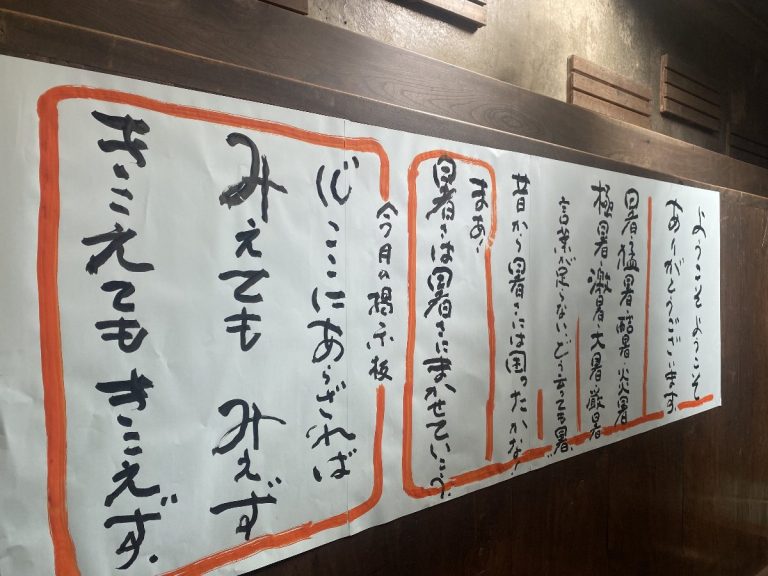 ようこそようこそ
ありがとうございます。
暑・猛暑・酷暑・炎暑
極暑・激暑・大暑・厳暑
言葉が足らない、どう言っても暑。
昔から暑さには困ったかな!
まあ!
暑さは暑さにまかせていこう。
今月の掲示板
心ここにあらざれば
みえても みえず
きこえてもきこえず。